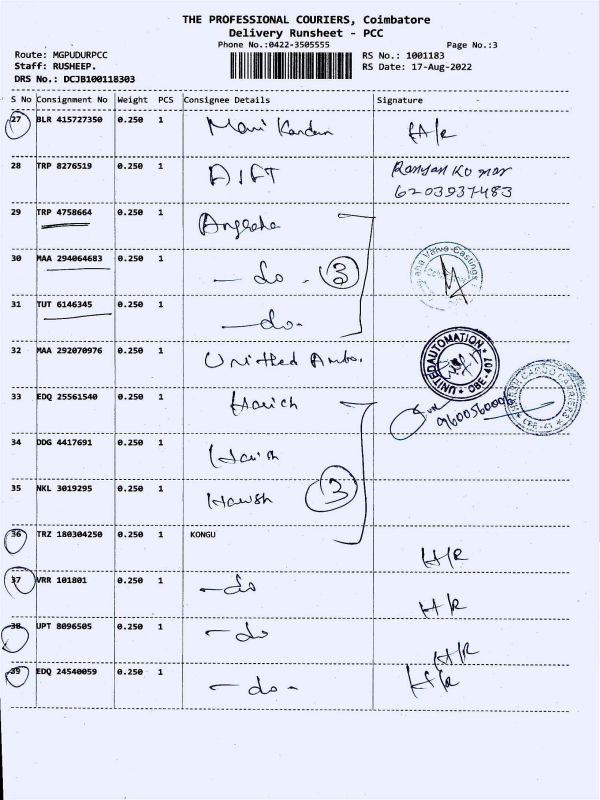 THE PROFESSIONAL COURIERS, Coimbatore
Delivery Runsheet - PCC
Phone No.:0422-3505555 Page No.:3
Route: MGPUDURPCC RS No.: 1001183
Staff: RUSHEEP. RS Date: 17-Aug-2022
DRS No.: DCJB100118303
S No Consignment No Weight PCS Consignee Details Signature
27 BLR 415727350 0.250 1 Mani Kandan H/R
28 TRP 8276519 0.250 1 AIFT Ranjan Kumar
6203937483
29 TRP 4758664 0.250 1
30 MAA 294064683 0.250 1 - do - 3 Valve Castings
31 TUT 6146345 0.250 1 - do -
32 MAA 292070976 0.250 1 United Auto. UNITED AUTOMATION CBE-407
33 EDQ 25561540 0.250 1 Harish CARGO CARRIERS CBE-41
34 DDG 4417691 0.250 1 Harish
35 NKL 3019295 0.250 1 Harish 3
36 TRZ 180304250 0.250 1 KONGU H/R
37 VRR 101801 0.250 1 - do H/R
38 UPT 8096505 0.250 1 - do H/R
39 EDQ 24540059 0.250 1 - do - H/R